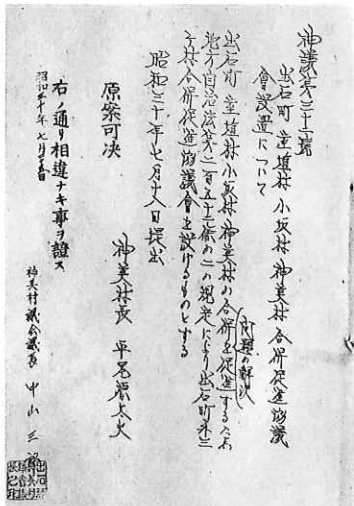 神議第三十二號
出石町 室埴村 小坂村 神美村 合併促進協議
會設置について
出石町室埴村小坂村神美村の合併を促進するため
問題の解決
地方自治法第二百五十二條の二の規定により出石町外三
ヶ村合併促進協議會を設けるものとする
昭和三十年七月 日提出
神美村長 平尾 太夫
原案可決
右ノ通リ相違ナキ事ヲ證ス
昭和三十年 七月 日
神美村議会議長 中山三